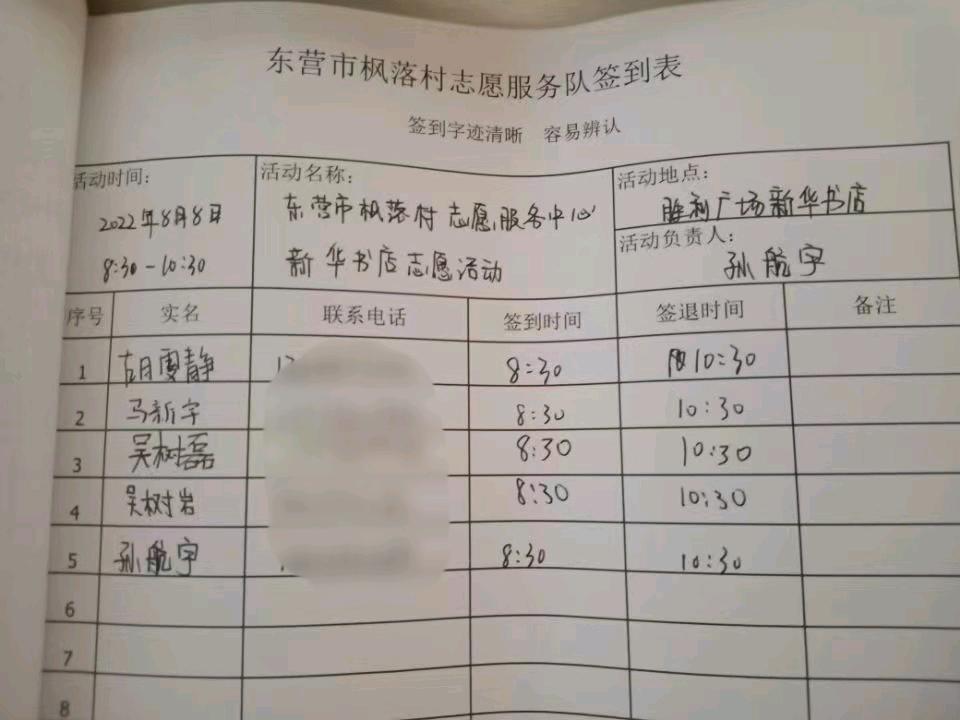 东营市枫落村志愿服务队签到表
签到字迹清晰 容易辨认
活动时间:
2022年8月8日
8:30-10:30
活动名称:
东营市枫落村志愿服务中心
新华书店志愿活动
活动地点:
胜利广场新华书店
活动负责人:
孙航宇
序号 实名 联系电话 签到时间 签退时间 备注
1 胡雯静 8:30 10:30
2 马新宇 8:30 10:30
3 吴树磊 8:30 10:30
4 吴树岩 8:30 10:30
5 孙航宇 8:30 10:30
6
7
8